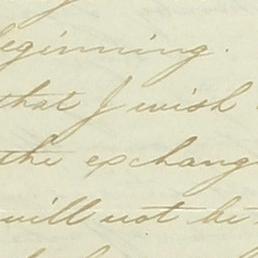 beginning.
that I wish
the exchang
will not be